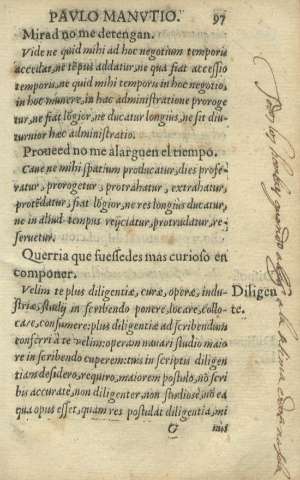 PAVLO MANVTIO. 97
Mirad no me detengan.
Vide ne quid mihi ad hoc negotium temporis
accedat, ne tẽpus addatur, ne qua fiat accessio
temporis, ne quid mihi temporis in hoc negotio,
in hoc munere, in hac administratione proroge
tur, ne fiat lõgior, ne ducatur longius, ne sit diu-
turnior hæc administratio.
Proueed no me alarguen el tiempo.
Caue ne mihi spatium producatur, dies profe-
ratur, prorogetur, protrahatur, extrahatur,
protẽdatur, fiat lõgior, ne res longius ducatur,
ne in aliud tempus reijciatur, protrudatur, re-
seruetur.
Querria que fuessedes mas curioso en
componer.
Velim te plus diligentiæ, curæ, operæ, indu-
striæ, studij in scribendo ponere, locare, collo-
care, consumere: plus diligentiæ ad scribendum
cõferri à te velim: operam nauari studio maio
re in scribendo cuperem: tuis in scriptis diligen
tiam desidero, requiro, maiorem postulo, nõ scri
bis accuratè, non diligenter, non studiosè, nõ ea
qua opus esset, quam res postulat diligentia, mi
Diligen
te.
G nus